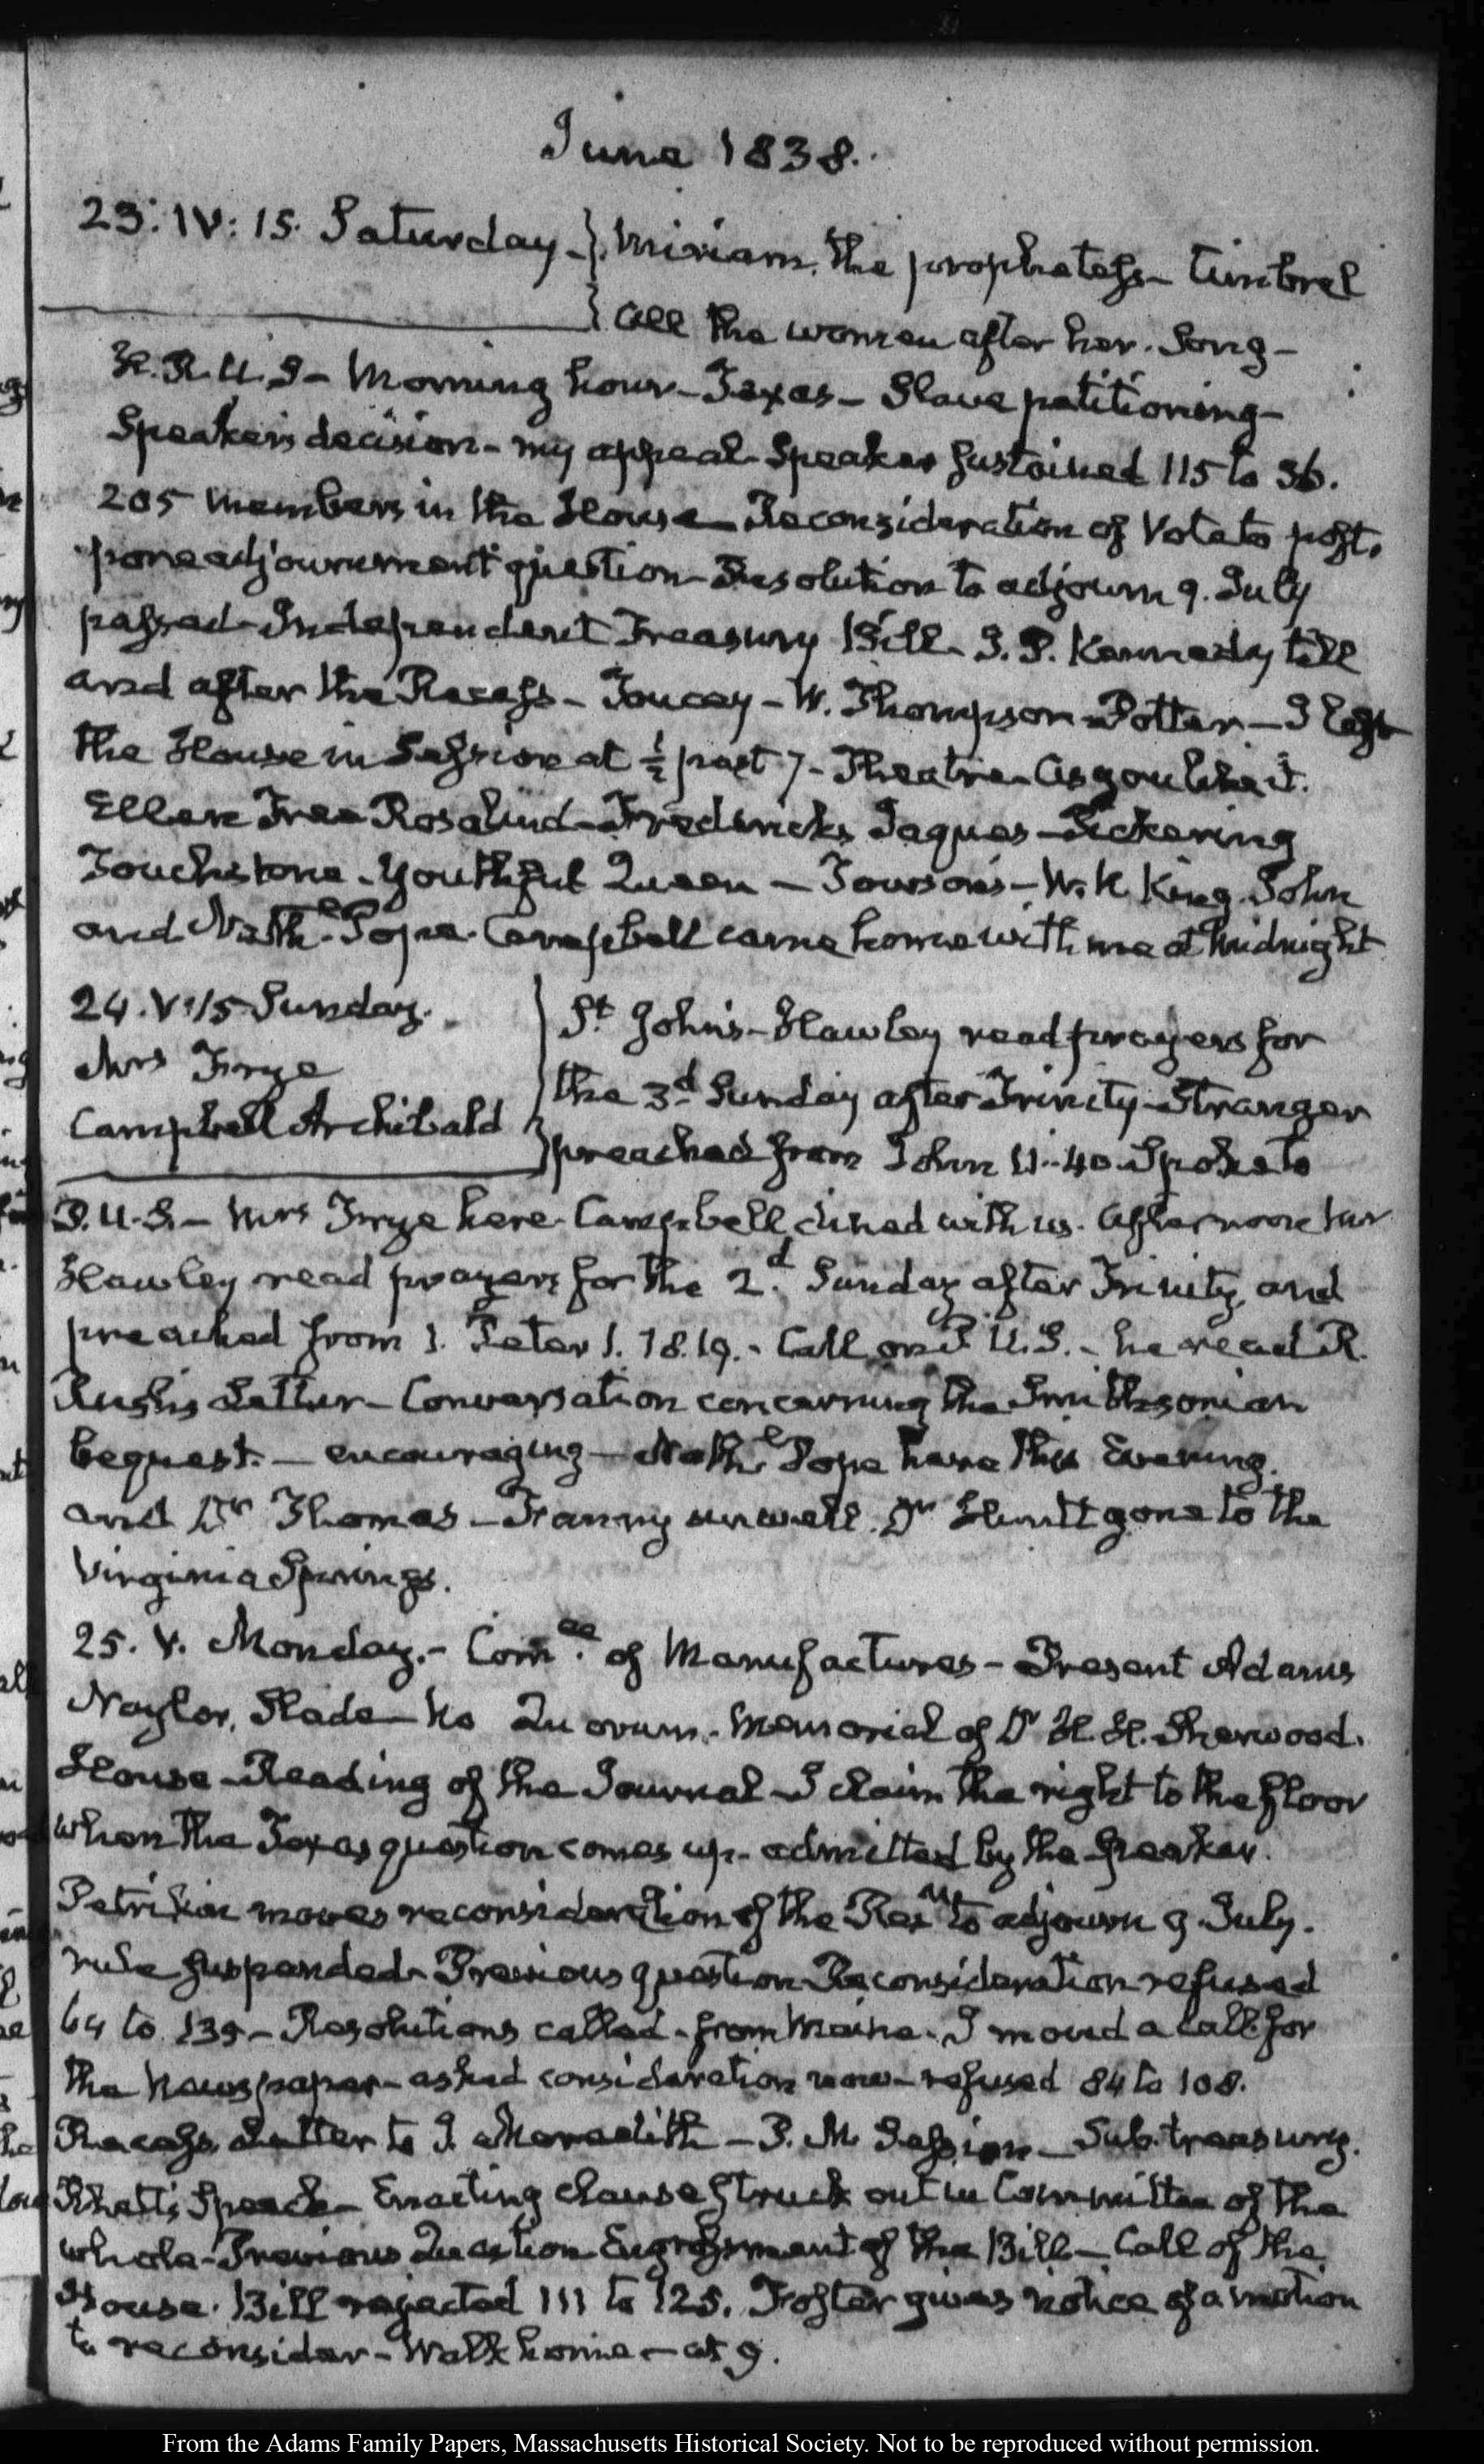 June 1838.
23. IV: 15. Saturday. } Miriam. the prophetess - timbrel
} all the women after her. Song -
H.R.U.S - Morning hour - Texas - Slave petitioning -
Speaker's decision - my appeal. Speaker sustained 115 to 36.
205 members in the House - Reconsideration of Vote to post,
pone adjournment question - Resolution to adjourn 9. July
passed - Independent Treasury Bill. J. P. Kennedy till
and after the Recess - Toucey - W. Thompson - Potter - I left
the House in Session at ½ past 7 - Theatre - As you like it.
Ellen Tree Rosalind - Fredericks Jaques - Pickering
Touchstone - Youthful Queen - Towson's - W. R. King. John
and Nathl. Pope. Campbell came home with me at Midnight
24. V:15 Sunday.
Mrs Frye
Campbell Archibald
St John's - Hawley read prayers for
the 3d Sunday after Trinity - Stranger
preached from John 11.40. Spoke to
P.U.S. - Mrs Frye here. Campbell dined with us. Afternoon Mr
Hawley read prayers for the 2d Sunday after Trinity, and
preached from 1. Peter 1. 18.19. - Call on P.U.S. - he read R.
Rush's Letter - Conversation concerning the Smithsonian
bequest. - encouraging - Nathl Pope here this Evening.
and Dr Thomas - Fanny unwell. Dr Huntt gone to the
Virginia Springs.
25. V. Monday. - Comee. of Manufactures - Present Adams
Naylor, Slade - No Quorum. Memorial of Dr H. H. Sherwood.
House - Reading of the Journal - I claim the right to the floor
when the Texas question comes up - admitted by the Speaker.
Petrikin moves reconsideration of the Resn to adjourn 9 July.
rule suspended - Previous question - Reconsideration refused
64 to 139 - Resolutions called - from Maine. I moved a call for
the Newspaper - asked consideration now - refused 84 to 108.
Recess. Letter to J. Meredith - P. M. Session - Sub. treasury.
Rhett's Speech - Enacting clause struck out in Committee of the
whole - Previous Question - Engrossment of the Bill - Call of the
House. Bill rejected 111 to 125. Foster gives notice of a motion
to reconsider - Walk home - at 9.
From the Adams Family Papers, Massachusetts Historical Society. Not to be reproduced without permission.